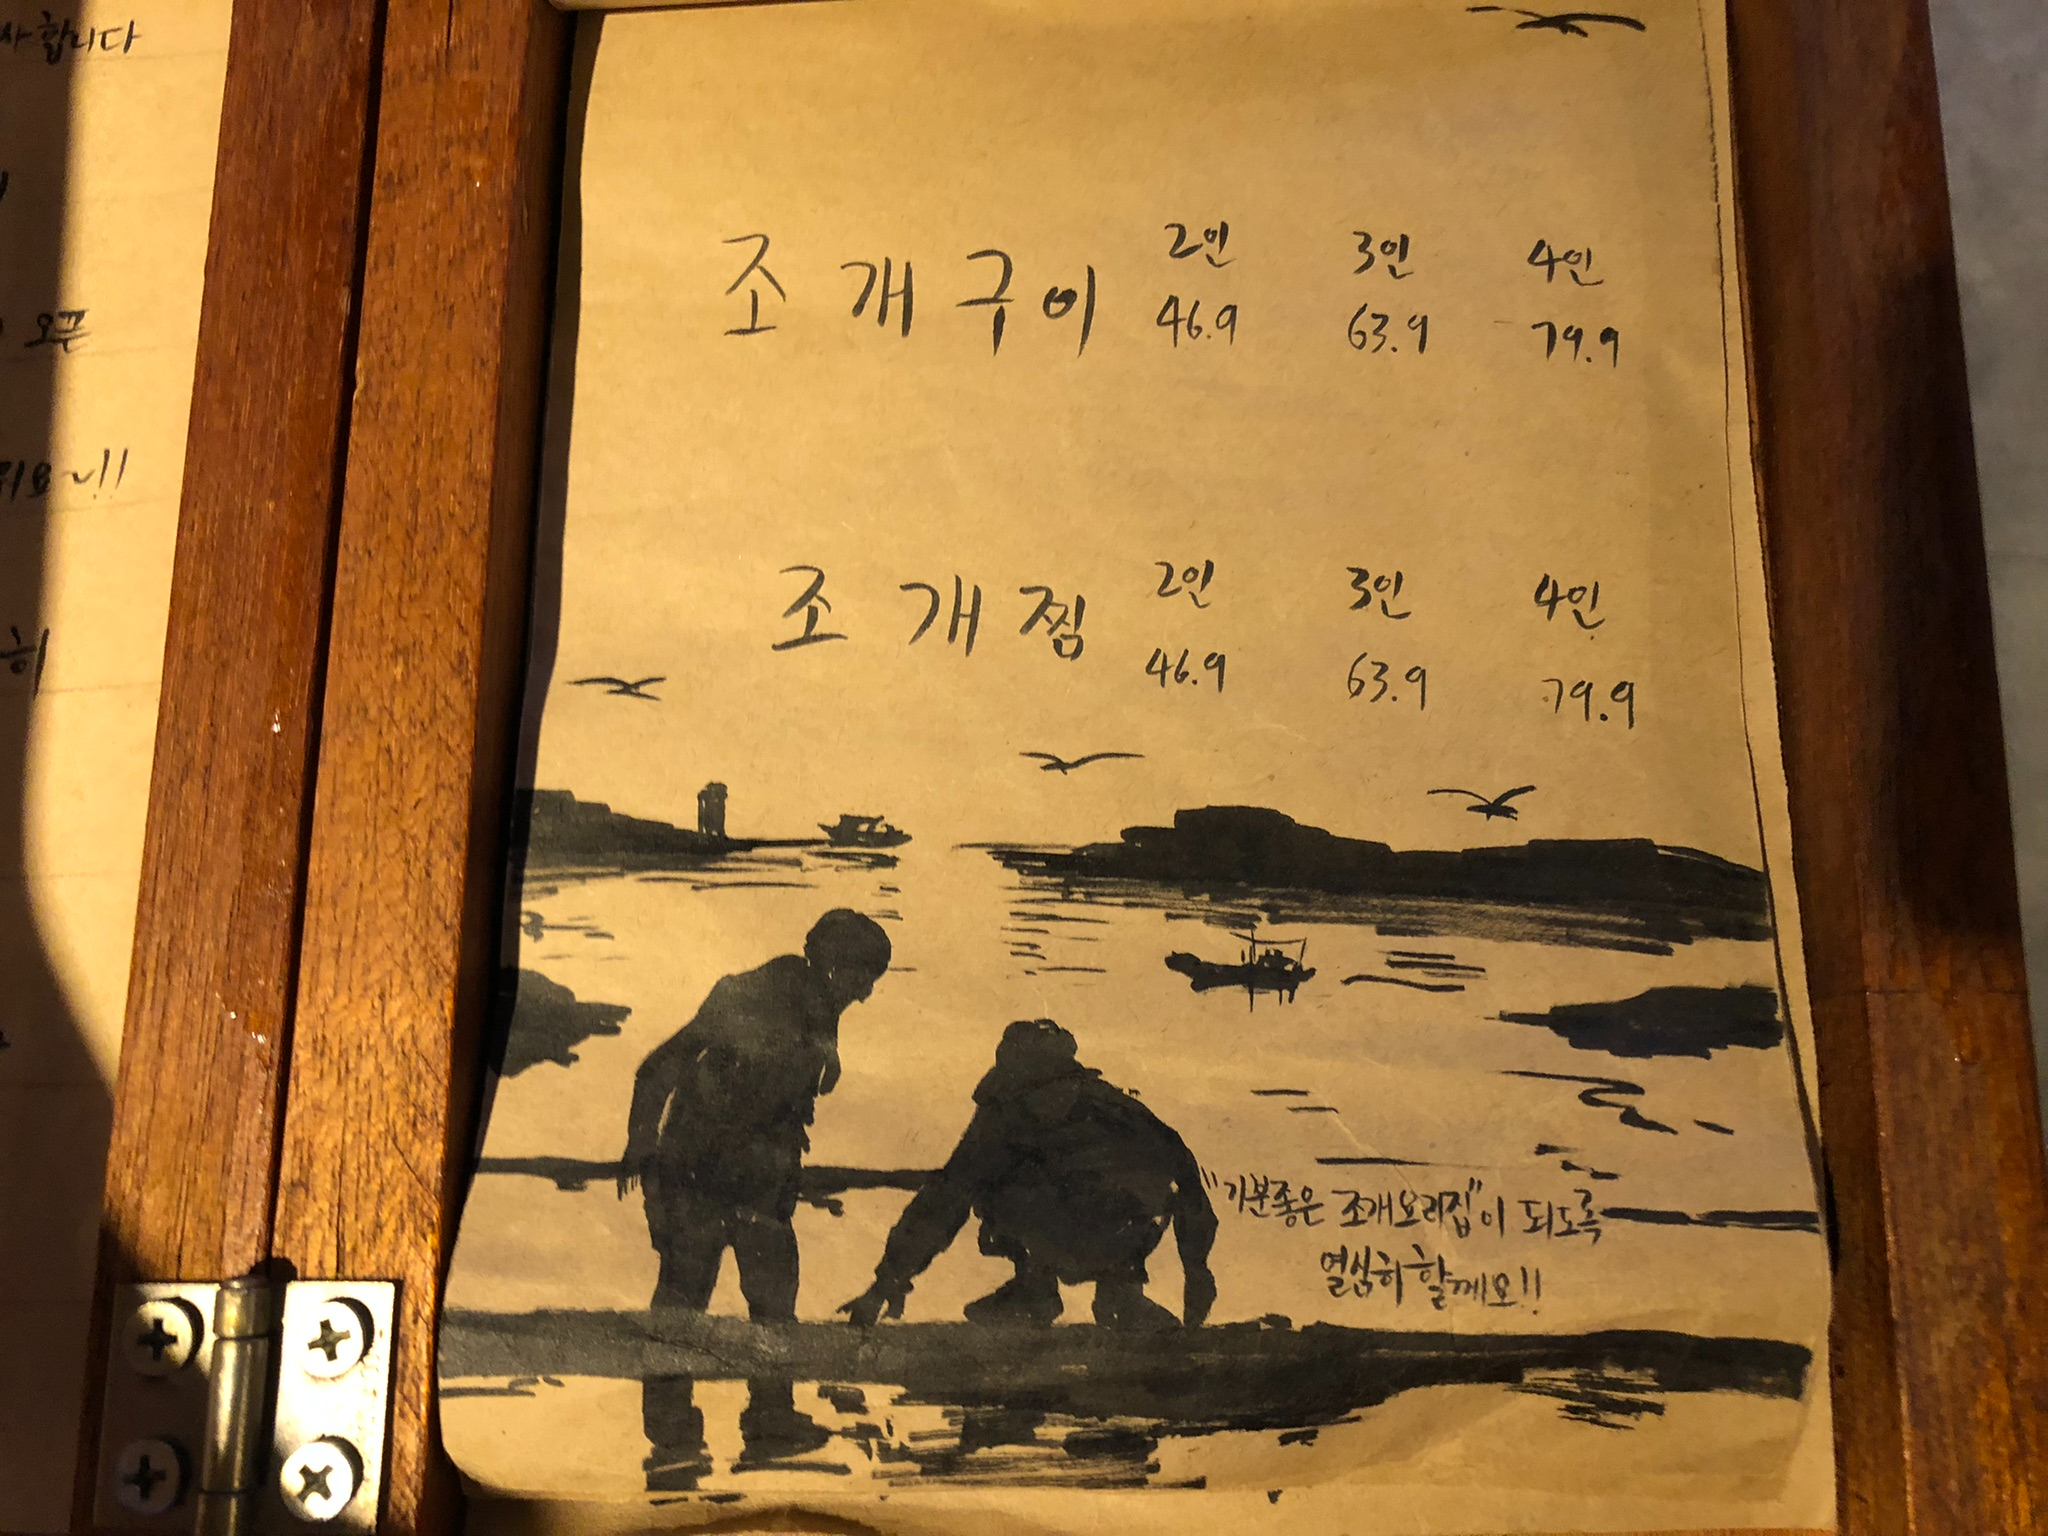 사합니다
오픈
워요~!!
히
2인 3인 4인
조개구이 46.9 63.9 79.9
2인 3인 4인
조개찜 46.9 63.9 79.9
"기분좋은 조개요리집"이 되도록
열심히 할께요!!